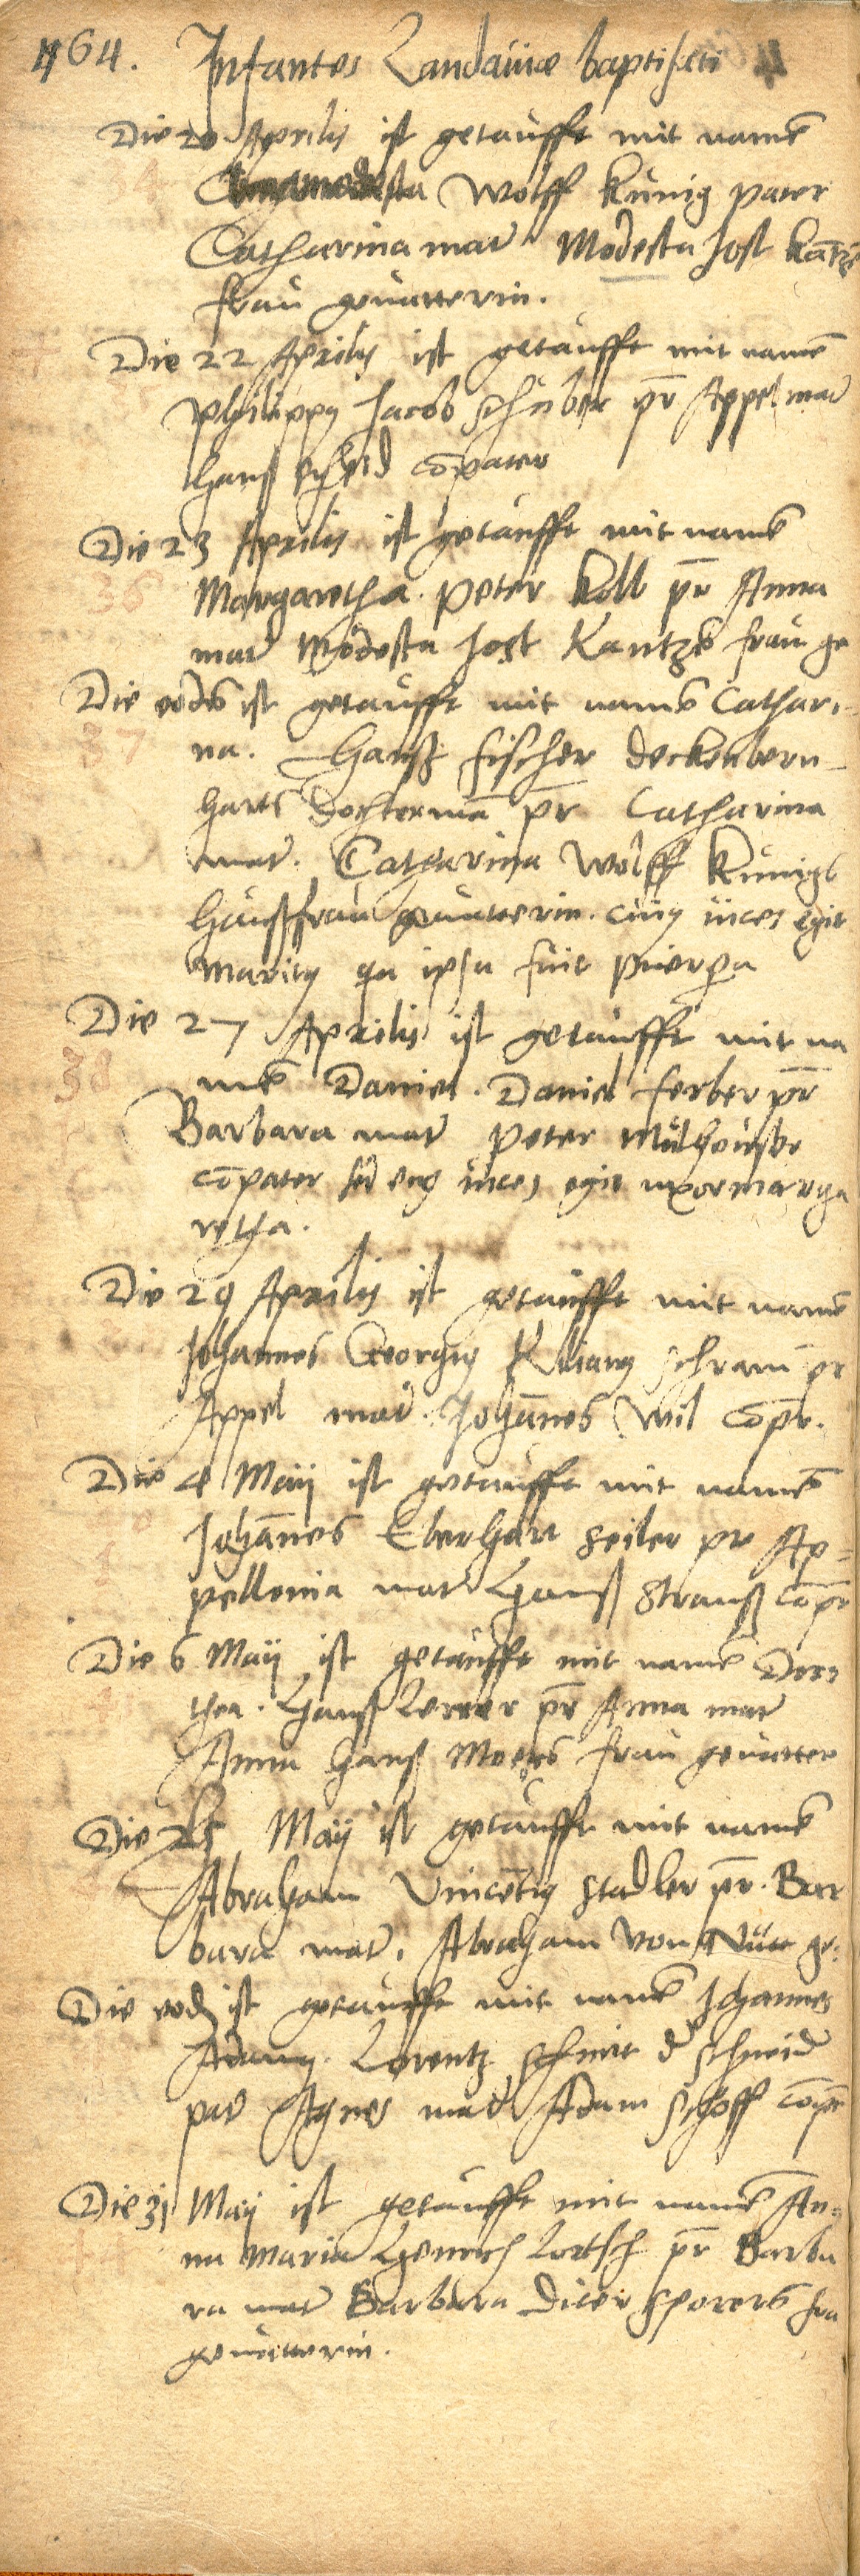 1564. Infantes Landaviae baptisati
Die 20 Aprilis ist getaufft mit namē
Wolff Künig pater
Catharina mat Modesta Jost Kātzē
frau gevatterin.
Die 22 Aprilis ist getaufft mit namē
Philippꝰ Jacob Schiber pr̄ Appel mat
Hanß cōpater
Die 23 Aprilis ist getaufft mit namē
36
Margaretha. Peter Koll pr̄ Anna
mat Modesta Jost Kantzē frau ge
Die eodē ist getaufft mit namē Cathari-
37
na. Hanß Fischer deckenbern-
harts dochtermā pr̄ Catharina
mat. Catharina Wolff Künigs
haußfrau gevatterin. cuiꝰ vices egit
maritꝰ qa ipsa fuit puerpa
Die 27 Aprilis ist getaufft mit na
38
mē Daniel. Daniel Ferber pr̄
Barbara mat Peter Mülhouser
cōpater sed eiꝰ vices egit uxor marga
retha.
Die 29 Aprilis ist getaufft mit namē
Johannes Georgiꝰ Kilianꝰ Schram pr
Appel mat. Johānes Wil copr.
Die 4 Maij ist getaufft mit namē
Johānes Eberhart Seiler pr Ap=
pellonia mat Hanß Strauß cōpr
Die 6 Maij ist getaufft mit namē Doro
thea. Hanß Lerer pr̄ Anna mat
Anna Hanß Moers frau gevatter
Die 25 Maij ist getaufft mit namē
Abraham Vincētiꝰ Stadler pr̄. Bar
bara mat. Abraham von ge:
Die eodē ist getaufft mit namē Johannes
Adamꝰ. Lorentz Schmit d Schneid
pat Agnes mat Adam Schoff cōpr
Die 31 Maij ist getaufft mit namē An=
na Maria Henrich Lortsch pr̄ Barba
ra mat Barbara Diter Sporers fra
gevatterin.